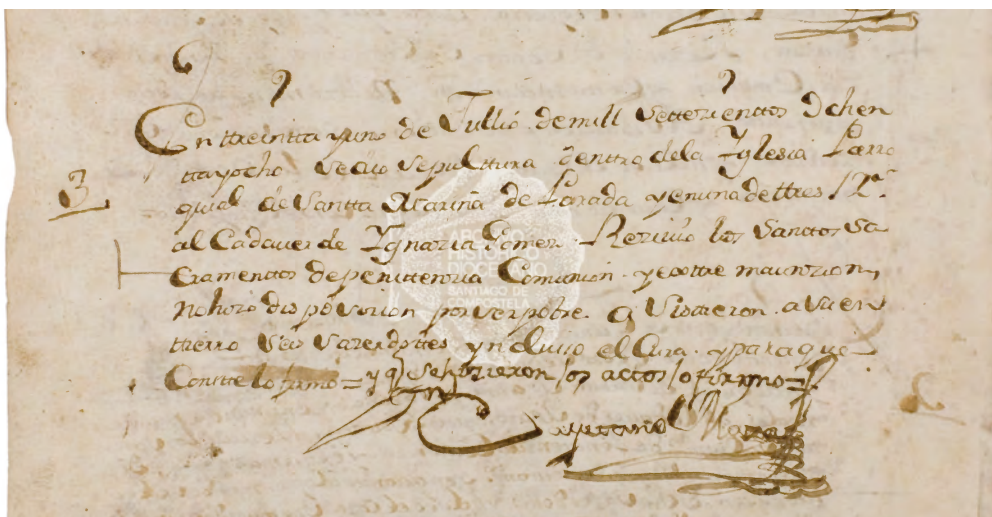 En ttreintta y uno de Jullio de mill Settecienttos Ochen
ttayocho se dio Sepulttura dentro dela Yglesia Parro
quial de Santta Marina de Parada y en una de ttres Rs
al Cadaver de Ygnazia Gomez Rezivio los Santtos Sa
Cramenttos de penittenzia Comunion y exttremaunzion
No hizo disposizion por ser pobre a Visttieron a su en
ttierro Seis Sazerdottes yncluso el Cura y para que
Consste lo firmo = y q se hizieron los acttos lo firmo =
Cayetano
3
ARCHIVO
HISTÓRICO
DIOCESANO
SANTIAGO DE
COMPOSTELA